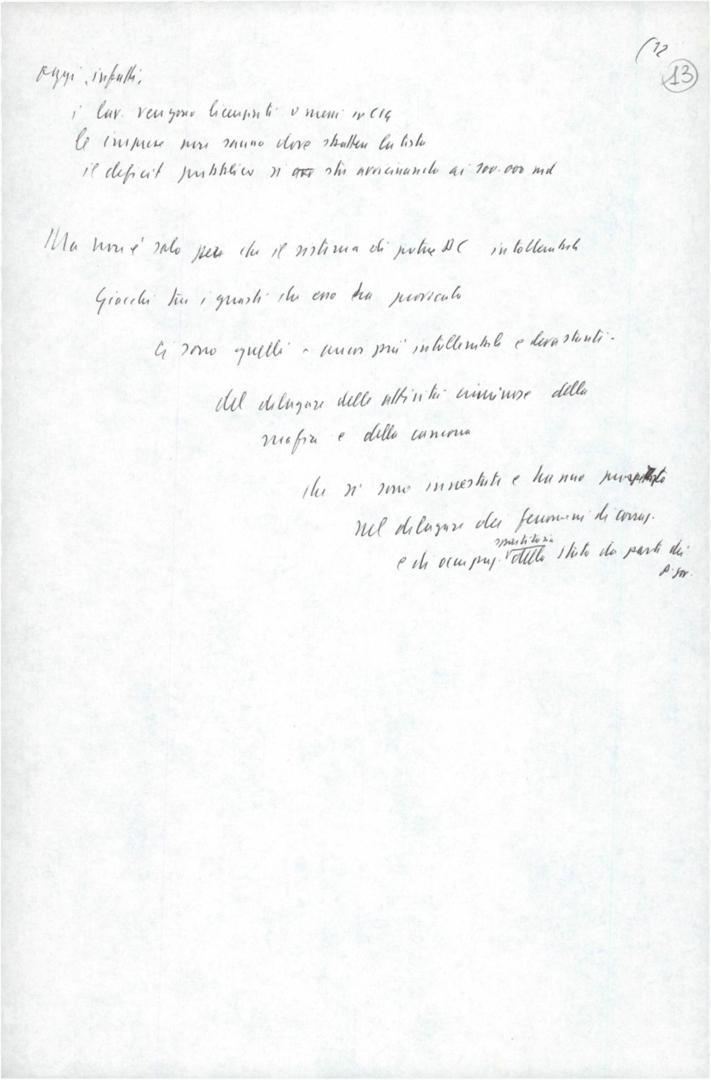 (12
13
Oggi, infatti,
i lav. vengono licenziati o messi in CIG
le imprese non sanno dove sbattere la testa
il deficit pubblico si sta avvicinando ai 100.000 md
Ma non è solo per che il sistema di potere DC intollerabile
Giacché tra i guasti che esso ha provocato
Ci sono quelli - ancor più intollerabili e devastanti -
del dilagare delle attività criminose della
mafia e della camorra
che si sono innestate e hanno
nel dilagare dei fenomeni di corruz.
e di occupaz. spartitoria dello stato da parte dei
p. gov.